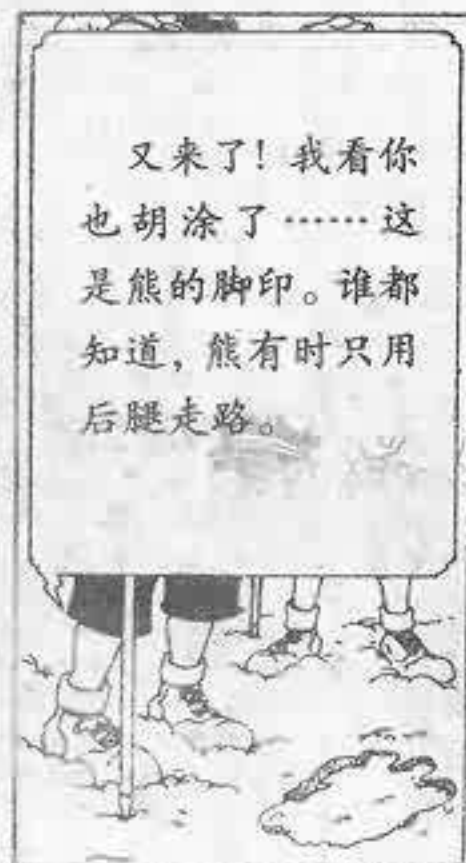 又来了！我看你
也胡涂了……这
是熊的脚印。谁都
知道，熊有时只用
后腿走路。